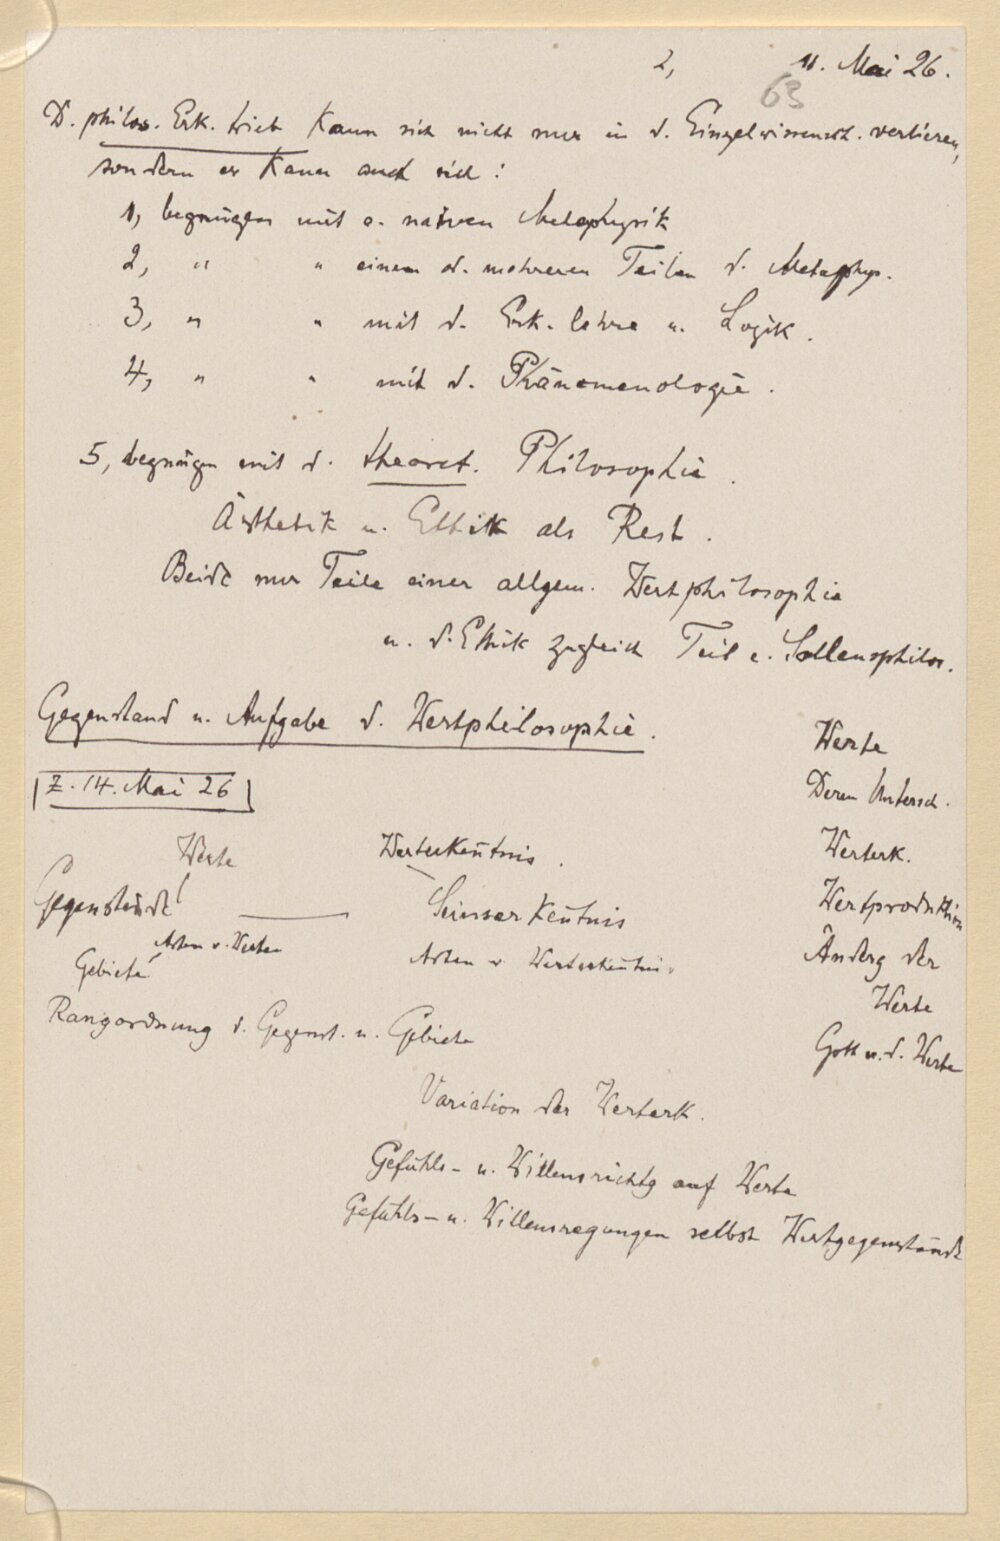 2, 11. Mai 26.
63
D. philos. Erk. trieb kann sich nicht nur in d. Einzelwissensch. verlieren,
sondern er kann auch sich:
1, begnügen mit e. naiven Metaphysik
2, " " einem od. mehreren Teilen d. Metaphys.
3, " " mit d. Erk. lehre u. Logik.
4, " " mit d. Phänomenologie.
5, begnügen mit d. theoret. Philosophie.
Ästhetik u. Ethik als Rest.
Beide nur Teile einer allgem. Wertphilosophie
u. d. Ethik zugleich Teil e. Sollensphilos.
Gegenstand u. Aufgabe d. Wertphilosophie.
Z. 14. Mai 26
Werte Werterkentnis.
Gegenstände Seinserkentnis
Arten v. Werten Arten v Werterkentnis
Gebiete
Rangordnung d. Gegenst. u. Gebiete
Variation der Werterk.
Gefühls- u. Willensrichtg auf Werte
Gefühls- u. Willensregungen selbst Wertgegenstände
Werte
Deren Untersch.
Werterk.
Wertproduktion
Änderg der
Werte
Gott u. d. Werte